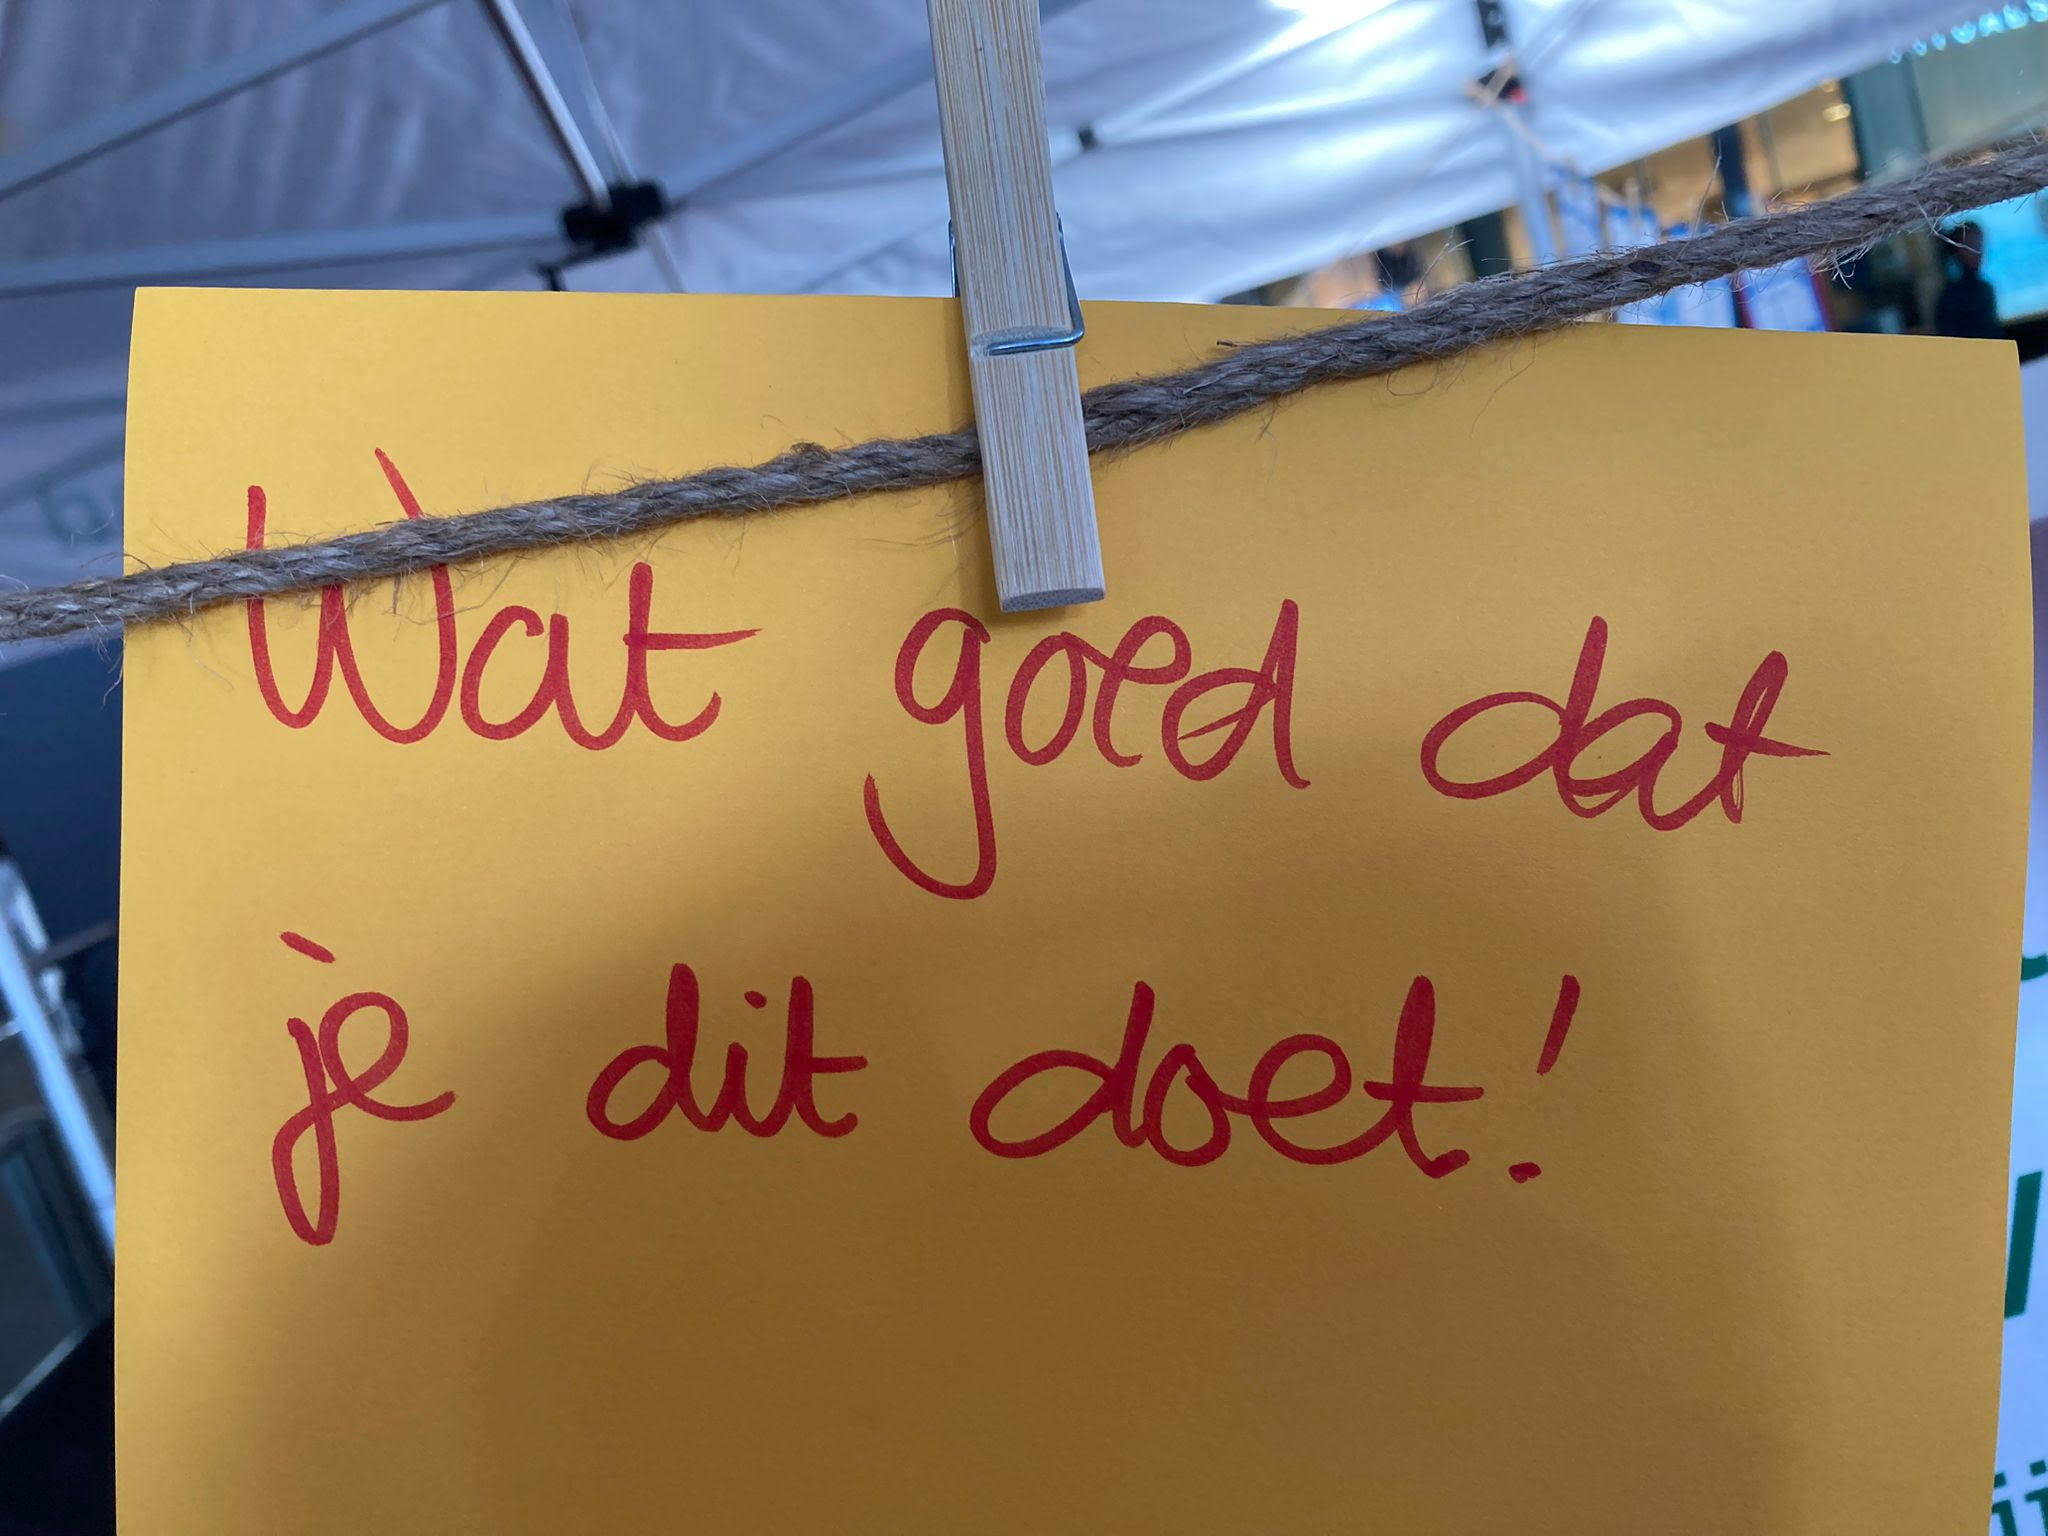 Wat goed dat
je dit doet!